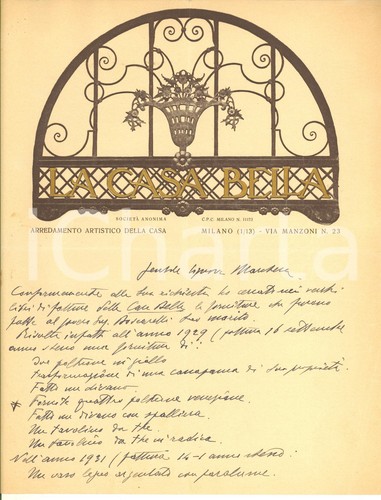 LA CASA BELLA
SOCIETÀ ANONIMA C.P.C. MILANO N.
ARREDAMENTO ARTISTICO DELLA CASA MILANO (1/13) - VIA MANZONI N. 23
Gentile Signora Marchesa
Conformemente alla Sua richiesta ho nei vecchi
libri di fatture della Casa Bella le forniture che furono
fatte al Ing. Suo marito.
Risulta infatti all'anno 1929 (fattura 16 settembre
anno stesso una fornitura di:
Due poltrone in giallo
Trasformazione di una di Sua proprietà.
Fatto un divano.
* Fornito quattro poltrone veneziane.
Fatto un divano con spalliera.
Un tavolino da the.
Un tavolino da the in radica.
Nell'anno 1931 (fattura 14-1 anno stesso:
Un vaso argentato con paralume.